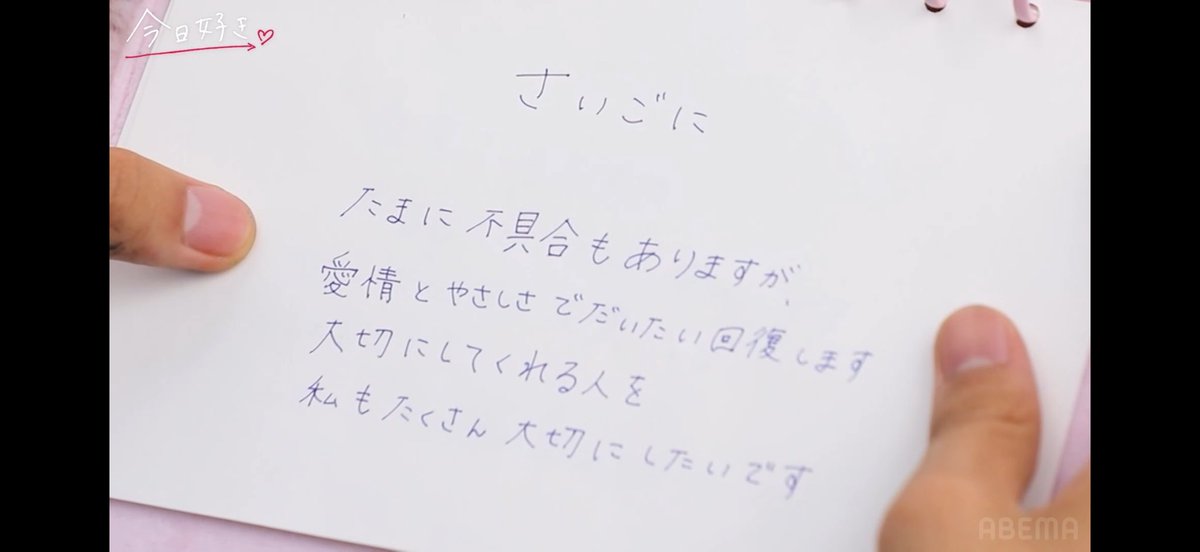 今日好き♡
さいごに
たまに不具合もありますが、
愛情とやさしさでだいたい回復します
大切にしてくれる人を
私もたくさん大切にしたいです
ABEMA